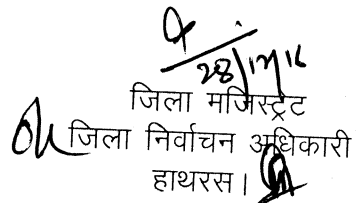 28/12/16
जिला मजिस्ट्रेट
जिला निर्वाचन अधिकारी
हाथरस।